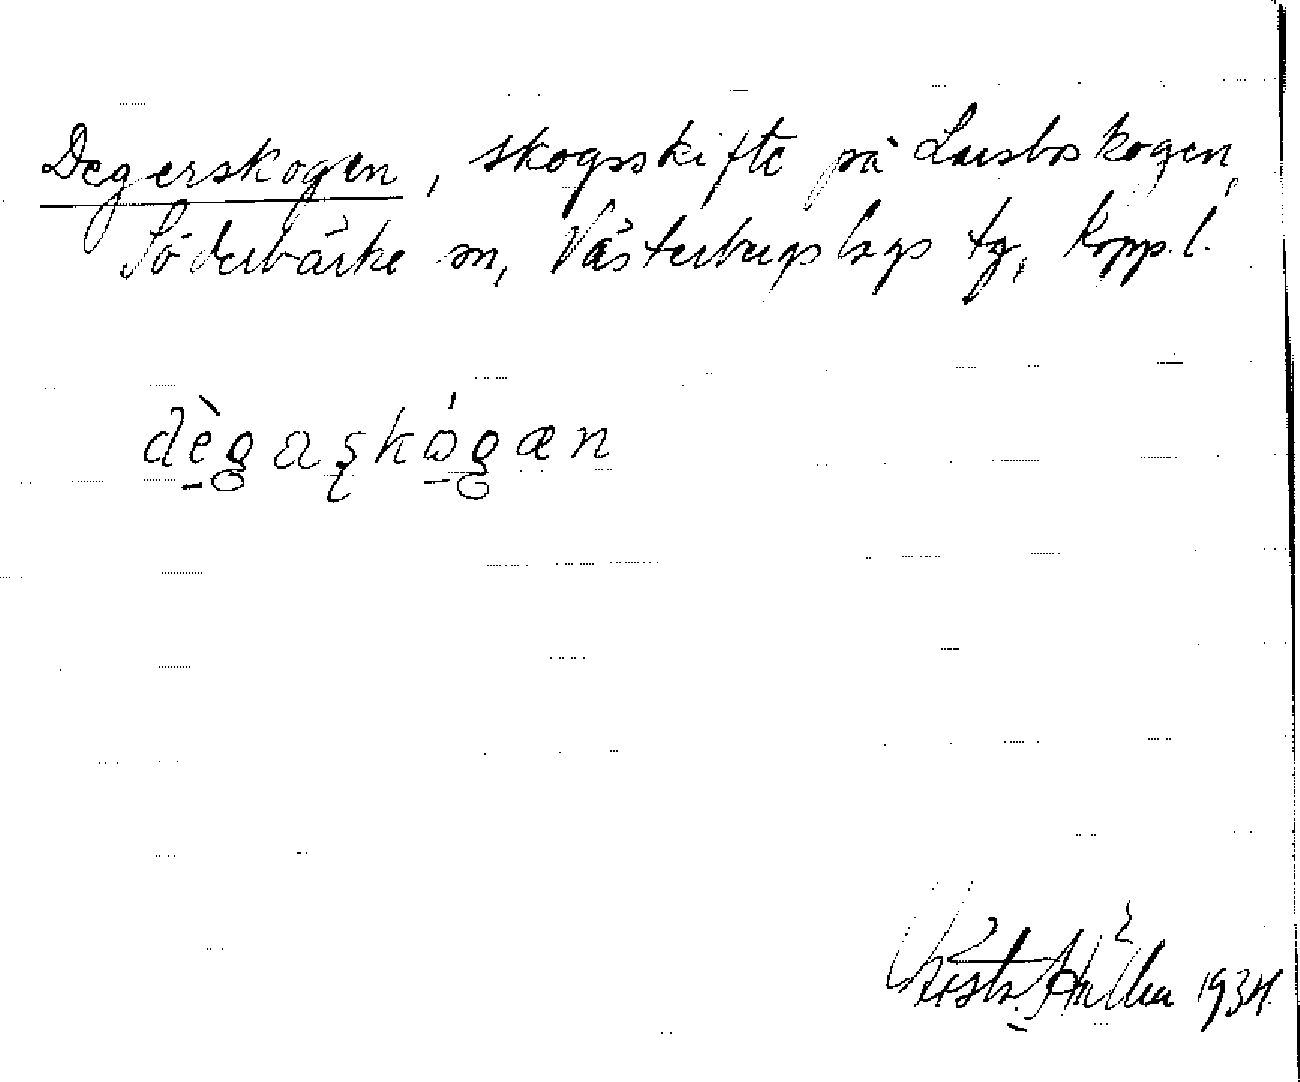 Degerskogen, skogsskifte på Larsboskogen,
Söderbärke sn, Västerbergslags tg, Kopp. l.
dègaskógæn
1934.